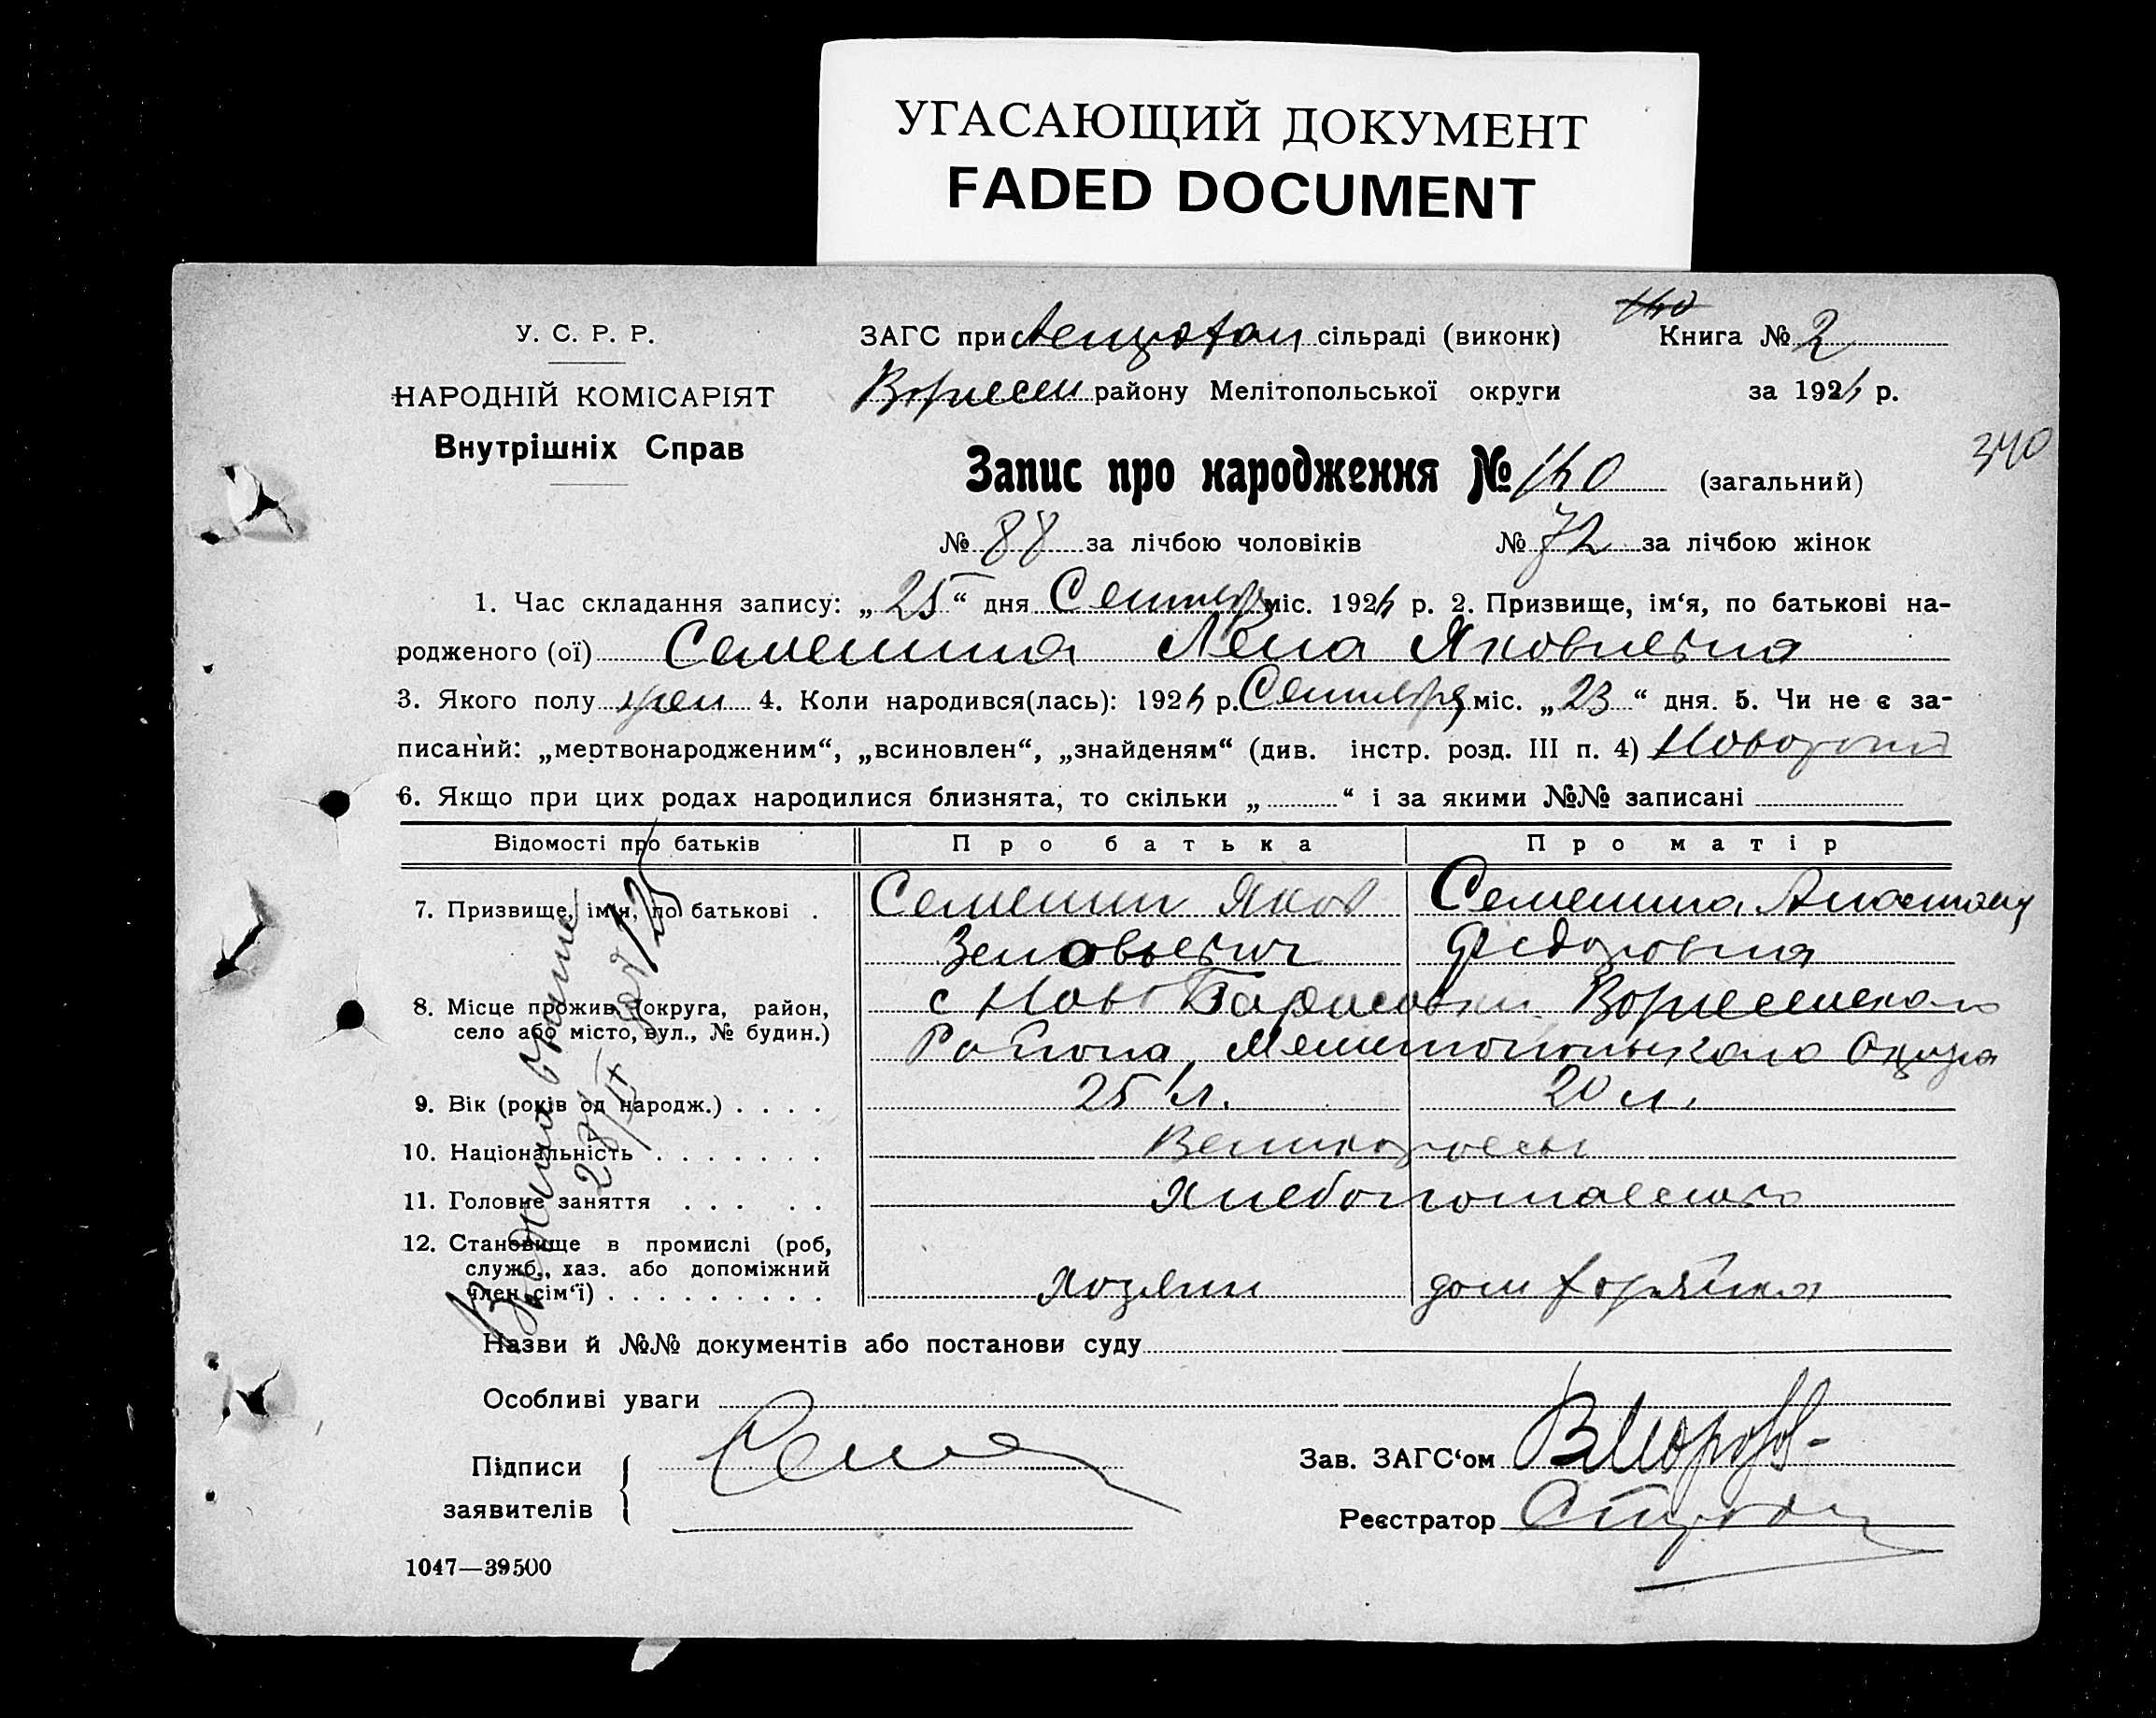 УГАСАЮЩИЙ ДОКУМЕНТ
FADED DOCUMENT
У. С. Р. Р.
НАРОДНІЙ КОМІСАРІЯТ
Внутрішніх Справ
ЗАГС при сільраді (виконк)
району Мелітопольської округи
140
Книга № 2
за 1924 р.
340
Запис про народження № 140 (загальний)
№ 88 за лічбою чоловіків № 72 за лічбою жінок
1. Час складання запису: „25“ дня Сентябр міс. 1924 р. 2. Призвище, ім‘я, по батькові на-
родженого (ої) Семенина Лена Яковлевна
3. Якого полу жен 4. Коли народився(лась): 1924 р. Сентября міс. „23“ дня. 5. Чи не є за-
писаний: „мертвонародженим“, „всиновлен“, „знайденям“ (див. інстр. розд. III п. 4)
6. Якщо при цих родах народилися близнята, то скільки „ “ і за якими №№ записані
Відомості про батьків Про батька Про матір
7. Призвище, ім‘я, по батькові . Семенин Яков Семенина
Зеновьевич Федоровна
8. Місце прожив. (округа, район, с Нов
село або місто, вул., № будин.) Района, Мелитопольского Округа
9. Вік (років од народж.) . . . . 25 л. 20 л.
10. Національність . . . . . . . Великороссы
11. Головне заняття . . . . . Хлебопашество
12. Становище в промислі (роб,
служб., хаз. або допоміжний
член сім‘ї) . . . . . . . . . Хозяин
Назви й №№ документів або постанови суду
Особливі уваги
Підписи
заявителів
Зав. ЗАГС‘ом
Реєстратор
1047—39500